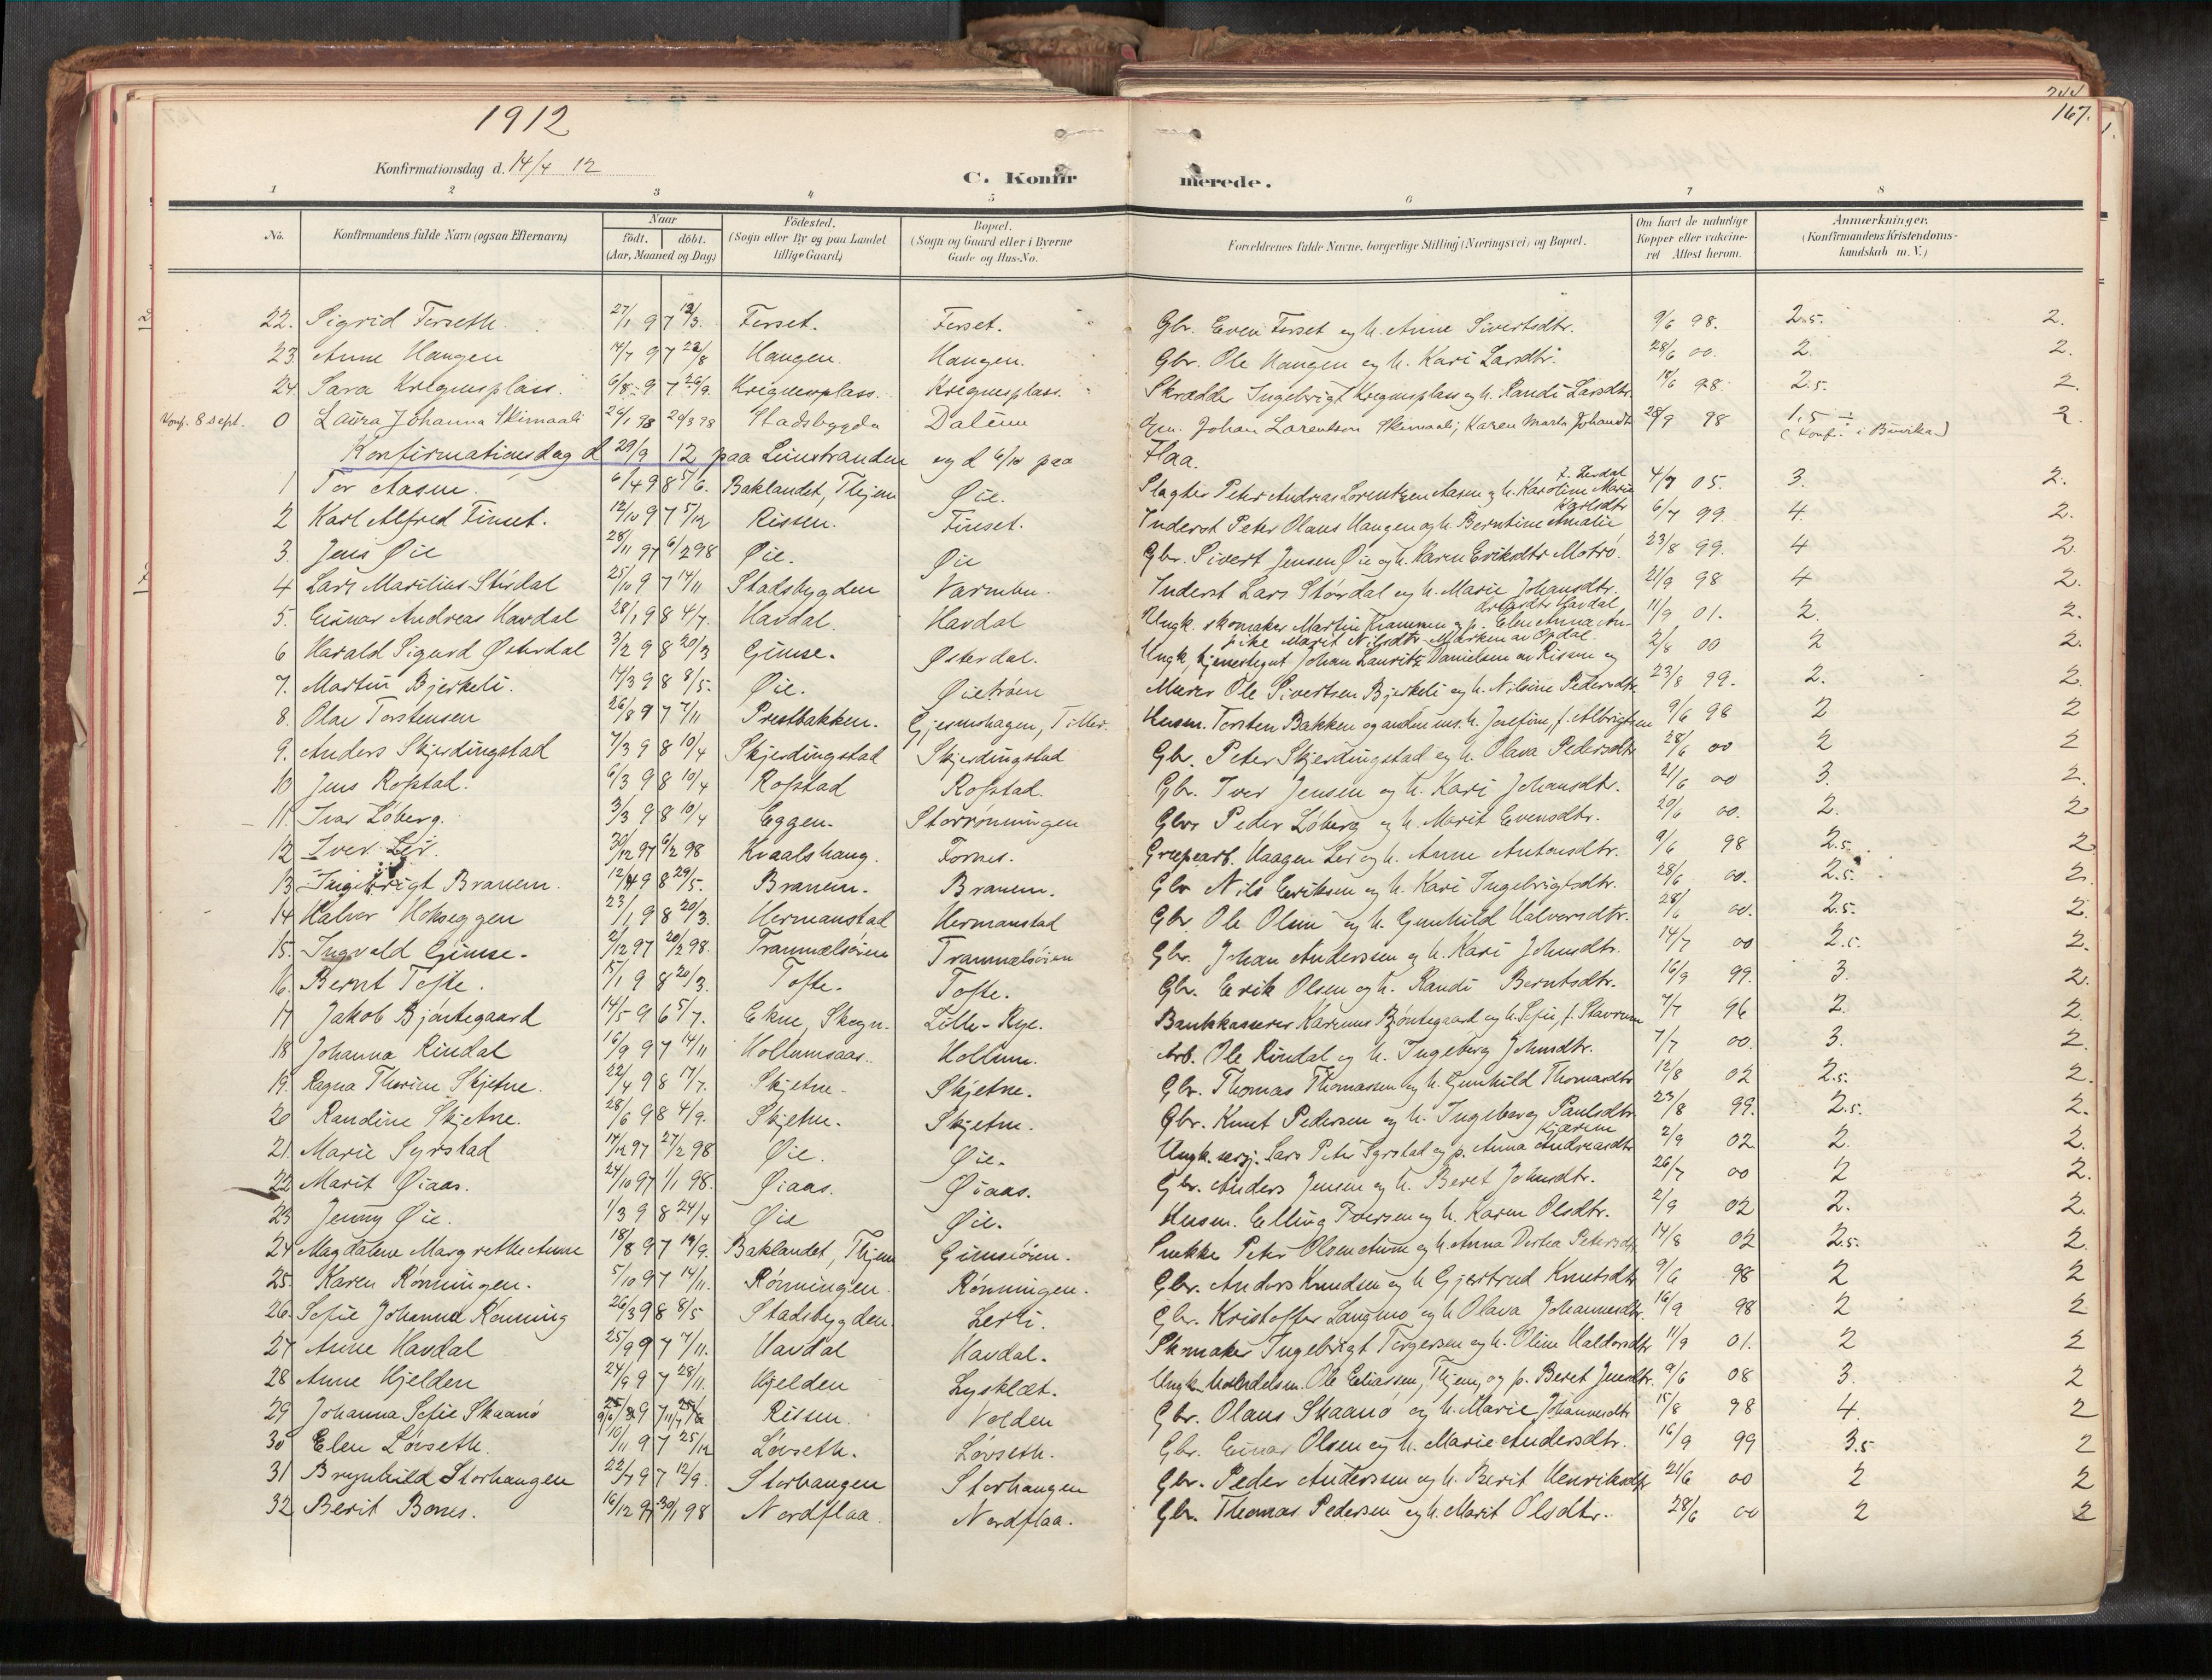 244
1912
167.
Konfirmationsdag d. 14/4 12
C. Konfir merede.
1 2 3 4 5 6 7 8
No. Konfirmandens fulde Navn (ogsaa Efternavn) Naar födt. döbt. (Aar, Maaned og Dag) Födested. (Sogn eller By og paa Landet tillige Gaard) Bopæl. (Sogn og Gaard eller i Byerne Gade og Hus-No. Forældrenes fulde Navne, borgerlige Stilling (Næringsvei) og Bopæl. Om havt de naturlige Kopper eller vakcineret Attest herom. Anmærkninger. (Konfirmandens Kristendomskundskab m. V.)
22. Sigrid Forseth. 27/1 97 13/3. Forset. Forset. Gbr. Even Forset og h. Anne Sivertsdtr. 9/6 98. 2.5. 2.
23 Anne Haugen 14/7 97 22/8 Haugen. Haugen. Gbr. Ole Haugen og h. Kari Larsdtr. 28/6 00. 2. 2.
24. Sara Kregnesplass. 6/8 97 26/9. Kregnesplass. Kregnesplass. Skrædder Ingebrigt Kregnesplass og h. Randi Larsdtr. 18/6 98. 2.5. 2.
Konf. 8 sept. 0 Laura Johanna Skimaali 24/1 98 20/3 98 Stadsbygda Dalum Johan Lorentsen Skimaali, Karen Marta Johansdtr 28/9 98 1.5 ÷ (Konf. i Buvika) 2
Konfirmationsdag d 29/9 12 paa Leinstranden og d 6/10 paa Flaa.
1 Tor Aasen. 6/4 98 5/6. Baklandet, Thjem Øie. Slagter Peter Andreas Lorentzen Aasen og h. Karoline Marie f. Lerdal 4/7 05. 3. 2.
2 Karl Alfred Finset. 12/10 97 5/12 Rissen. Finset. Inderst Peter Olaus Haugen og h. Berntine Amalie Karlsdtr 6/7 99. 4. 2.
3. Jens Øie 28/11 97 6/2 98 Øie. Øie Gbr. Sivert Jensen Øie og h. Karen Eriksdtr Motrø. 23/8 99. 4 2.
4 Lars Marilius Størdal 25/10 97 14/11 Stadsbygden Varmbu. Inderst Lars Størdal og h. Marie Johansdtr. 21/9 98 4 2.
5. Einar Andreas Havdal 28/1 98 4/7. Havdal. Havdal Ungk. skomaker Martin Krammen og p. Elen Anna Havdal 11/9 01. 2. 2.
6 Harald Sigurd Østerdal 3/2 98 20/3 Gimse. Østerdal. Ungk, tjenestegut Johan Lauritz Danielsen av Rissen og pike Marit Nilsdtr Marken av Opdal 2/8 00 2 2.
7. Martin Bjerkeli. 14/3 98 8/5. Øie. Øietrøen Murer Ole Sivertsen Bjerkeli og h. Nilsine Pedersdtr 23/8 99. 2. 2.
8. Olav Torstensen 26/8 97 7/11 Prestbakken. Gjesmshagen, Tiller. Husm. Torsten Bakken og anden hus.h. Josefine, f. Albrigtsen 9/6 98 2 2
9. Anders Skjerdingstad 7/3 98 10/4 Skjerdingstad Skjerdingstad Gbr. Peter Skjerdingstad og h. Olava Pedersdtr 28/6 00 2 2
10 Jens Rofstad. 6/3 98 10/4 Rofstad Rofstad. Gbr. Iver Jensen og h. Kari Johansdtr. 21/6 00 3. 2.
11. Ivar Løberg. 3/3 98 10/4 Eggen. Storrønningen Gbr. Peder Løberg og h. Marit Evensdtr. 20/6 00. 2. 2
12 Iver Ler. 30/12 97 6/2 98 Kvaalshaug. Fornes. Grubearb. Haagen Ler og h. Anne Antonsdtr. 9/6 98 2.5. 2
13 Ingebrigt Branem. 12/4 98 29/5. Branem. Branem. Gbr Nils Eriksen og h. Kari Ingebrigtsdtr. 28/6 00. 2.5. 2.
14 Halvor Hokseggen 23/1 98 20/3. Hermanstad Hermanstad Gbr. Ole Olsen og h. Gunhild Halvorsdtr. 28/6 00. 2.5. 2.
15. Ingvald Gimse. 2/12 97 20/2 98. Trammelsøien Trammelsøien Gbr. Johan Anderssen og h. Kari Johnsdtr. 14/7 00 2.5. 2.
16. Bernt Tofte. 15/1 98 20/3. Tofte. Tofte. Gbr. Erik Olsen og h. Randi Berntsdtr. 16/9 99. 3. 2.
17 Jakob Bjøntegaard 14/5 96 5/7. Ekne, Skogn. Lille-Kye. Bankkasserer Karenus Bjøntegaard og h. Sofie, f. Stavrum 7/7 96 2. 2.
18 Johanna Rindal 16/9 97 14/11 Hollumsaas. Hollum. Arb. Ole Rindal og h. Ingeborg Johnsdtr. 7/7 00. 3. 2.
19. Ragna Therine Skjetne. 22/4 98 17/7. Skjetne. Skjetne. Gbr. Thomas Thomassen og h. Gunhild Thomasdtr 12/8 02 2.5. 2.
20 Randine Skjetne. 28/6 98 4/9. Skjetne. Skjetne. Gbr. Knut Pedersen og h. Ingeborg Paulsdtr 23/8 99. 2.5. 2.
21. Marie Syrstad 14/12 97 27/2 98 Øie. Øie. Ungk. sersj. Lars Peter Syrstad og p. Anna Andreasdtr Kjæren 2/9 02 2. 2.
22 Marit Øiaas. 24/10 97 1/1 98. Øiaas. Øiaas. Gbr. Anders Jensen og h. Beret Johnsdtr. 26/7 00 2 2.
23 Jenny Øie. 1/3 98 24/4 Øie Øie. Husm. Elling Iversen og h. Karen Olsdtr. 2/9 02 2. 2.
24 Magdalene Margrethe Aune 18/8 97 19/9. Baklandet, Thjem Gimseøien. Snekker Peter Olsen Aune og h. Anna Dortea Petersdtr 14/8 02 2.5. 2.
25. Karen Rønningen. 5/10 97 14/11. Rønningen. Rønningen. Gbr. Anders Knudsen og h Gjertrud Knutsdtr 9/6 98 2 2
26. Sofie Johanna Rønning 26/3 98 8/5 Stadsbygden. Lerli. Gbr. Kristoffer Langmo og h Olava Johannesdtr. 16/9 98 2 2
27 Anne Havdal 25/9 97 7/11. Havdal Havdal. Skomaker Ingebrigt Torgersen og h. Oline Haldorsdtr 11/9 01. 2 2
28 Anne Hjelden 24/9 97 28/11. Hjelden Lysklæt. Ungk. Handelsm. Ole Eliassen, Thjem, og p. Beret Jensdtr. 9/6 08 3. 2
29 Johanna Sofie Skaanø 9/6 97 11/7 Rissen. Volden Gbr. Olaus Skaanø og h. Marie Johannesdtr 15/8 98 4. 2
30 Elen Løvseth. 10/11 97 25/12 Løvseth. Løvseth. Gbr. Einar Olsen og h. Marie Andersdtr. 16/9 99 3.5 2
31 Brynhild Storhaugen 22/7 97 12/9. Storhaugen Storhaugen Gbr. Peder Anderssen og h. Berit Henriksdtr 21/6 00 2 2
32 Berit Bones. 16/12 97 30/1 98 Nordflaa. Nordflaa. Gbr. Thomas Pedersen og h. Marit Olsdtr. 28/6 00 2 2